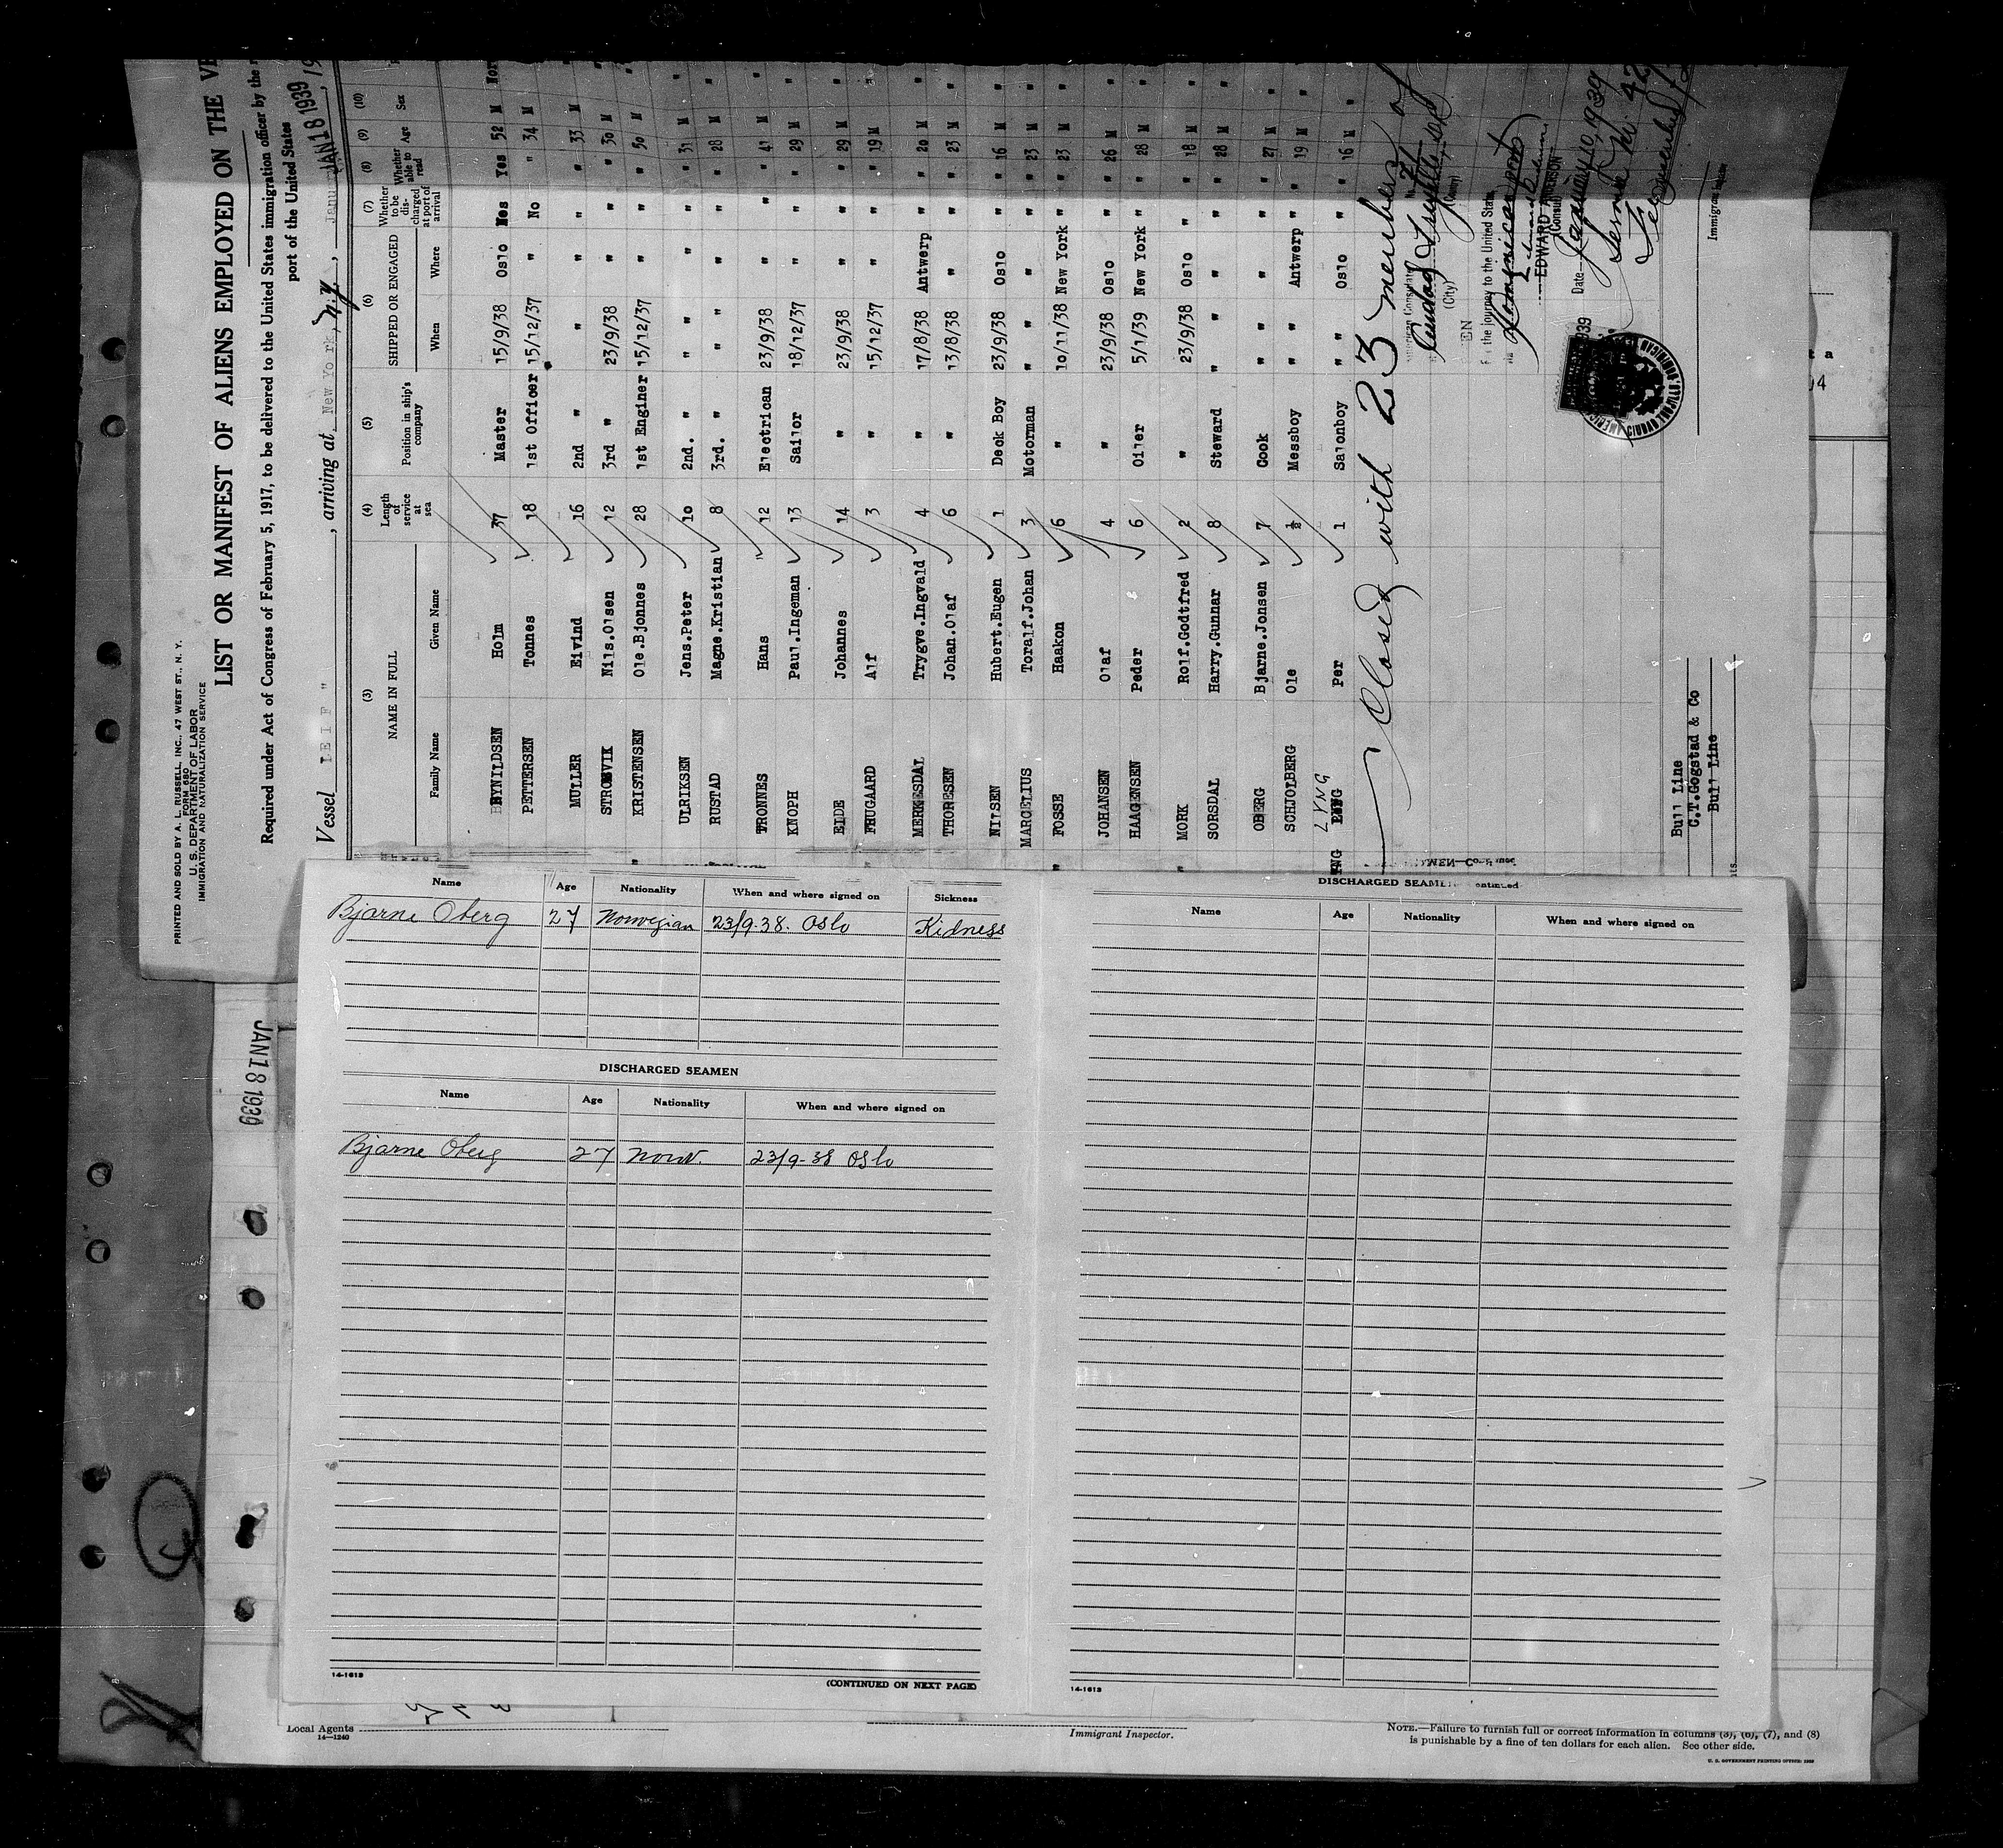 PRINTED AND SOLD BY A. L. RUSSELL, INC., 47 WEST ST., N. Y.
FORM 680
U. S. DEPARTMENT OF LABOR
IMMIGRATION AND NATURALIZATION SERVICE
LIST OR MANIFEST OF ALIENS EMPLOYED ON THE VE
Required under Act of Congress of February 5, 1917, to be delivered to the United States immigration officer by the
port of the United States
Vessel LEIF ", arriving at New York, N.Y., Janu JAN 18 1939, 19
(3) (4) (5) (6) (7) (8) (9) (10)
NAME IN FULL Length of service at sea Position in ship's company SHIPPED OR ENGAGED Whether to be discharged at port of arrival Whether able to read Age Sex
Family Name Given Name When Where
BRYNILDSEN Holm 37 Master 15/9/38 Oslo Yes 52 M Nor
PETTERSEN Tonnes 18 1st Officer 15/12/37 " No " 34 M "
MULLER Eivind 16 2nd " " " " " 33 M "
STROMVIK Nils.Olsen 12 3rd " 23/9/38 " " " 30 M "
KRISTENSEN Ole.Bjonnes 28 1st Enginer 15/12/37 " " " 50 M "
ULRIKSEN Jens.Peter 10 2nd. " " " " " 31 M "
RUSTAD Magne.Kristian 8 3rd. " " " " " 28 M "
TRONNES Hans 12 Electrican 23/9/38 " " " 41 M "
KNOPH Paul.Ingeman 13 Sailor 18/12/37 " " " 29 M "
EIDE Johannes 14 " 23/9/38 " " " 29 M "
HUGAARD Alf 3 " 15/12/37 " " " 19 M "
MERKESDAL Trygve.Ingvald 4 " 17/8/38 Antwerp " " 20 M "
THORESEN Johan.Olaf 6 " 13/8/38 " " " 23 M "
NILSEN Hubert.Eugen 1 Deck Boy 23/9/38 Oslo " " 16 M "
MARCELIUS Toralf.Johan 3 Motorman " " " " 23 M "
FOSSE Haakon 6 " 10/11/38 New York " " 23 M "
JOHANSEN Olaf 4 " 23/9/38 Oslo " " 26 M "
HAAGENSEN Peder 6 Oiler 5/1/39 New York " " 28 M "
MORK Rolf.Godtfred 2 " 23/9/38 Oslo " " 18 M "
SORSDAL Harry.Gunnar 8 Steward " " " " 28 M "
OBERG Bjarne.Jonsen 7 Cook " " " " 27 M "
SCHJOLBERG Ole ½ Messboy " " Antwerp " " 19 M "
LYNG Per 1 Salonboy " " Oslo " " 16 M "
Closed with 23 members of
American Consulate
Ciudad Trujillo, DR
(City) (County)
For the journey to the United States
via
EDWARD ANDERSON
(Consul)
Date January 10, 1939
Service No. 42
Immigration
Bull Line
C.T.Gogstad & Co
Bull Line
Name Age Nationality When and where signed on Sickness
Bjarne Oberg 27 Norwegian 23/9-38. Oslo Kidness
DISCHARGED SEAMEN
Name Age Nationality When and where signed on
Bjarne Oberg 27 Norw. 23/9-38 Oslo
14-1613
(CONTINUED ON NEXT PAGE)
DISCHARGED SEAMEN—Continued
Name Age Nationality When and where signed on
14-1613
JAN 18 1939
Local Agents
14—1240
Immigrant Inspector.
NOTE.—Failure to furnish full or correct information in columns (3), (6), (7), and (8)
is punishable by a fine of ten dollars for each alien. See other side.
U. S. GOVERNMENT PRINTING OFFICE